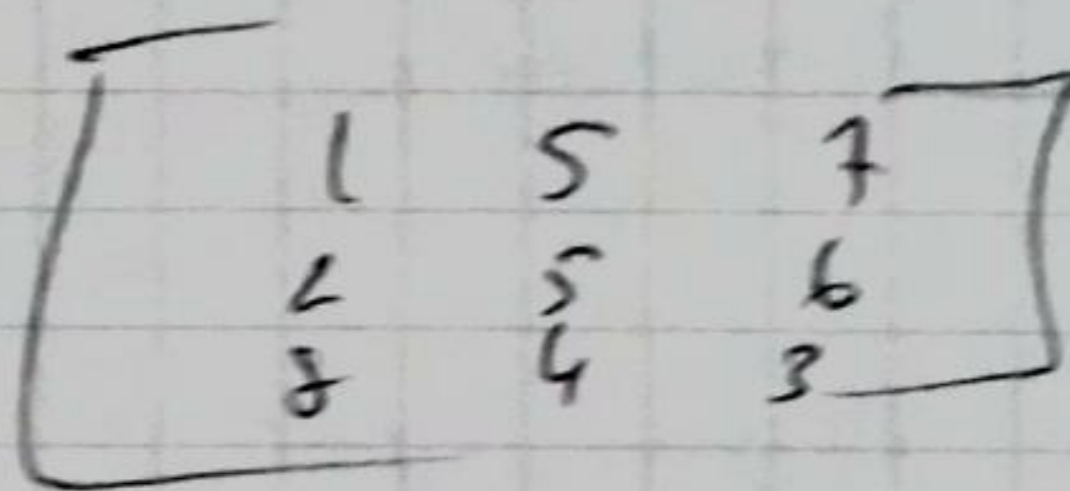 1 5 7
2 5 6
8 4 3